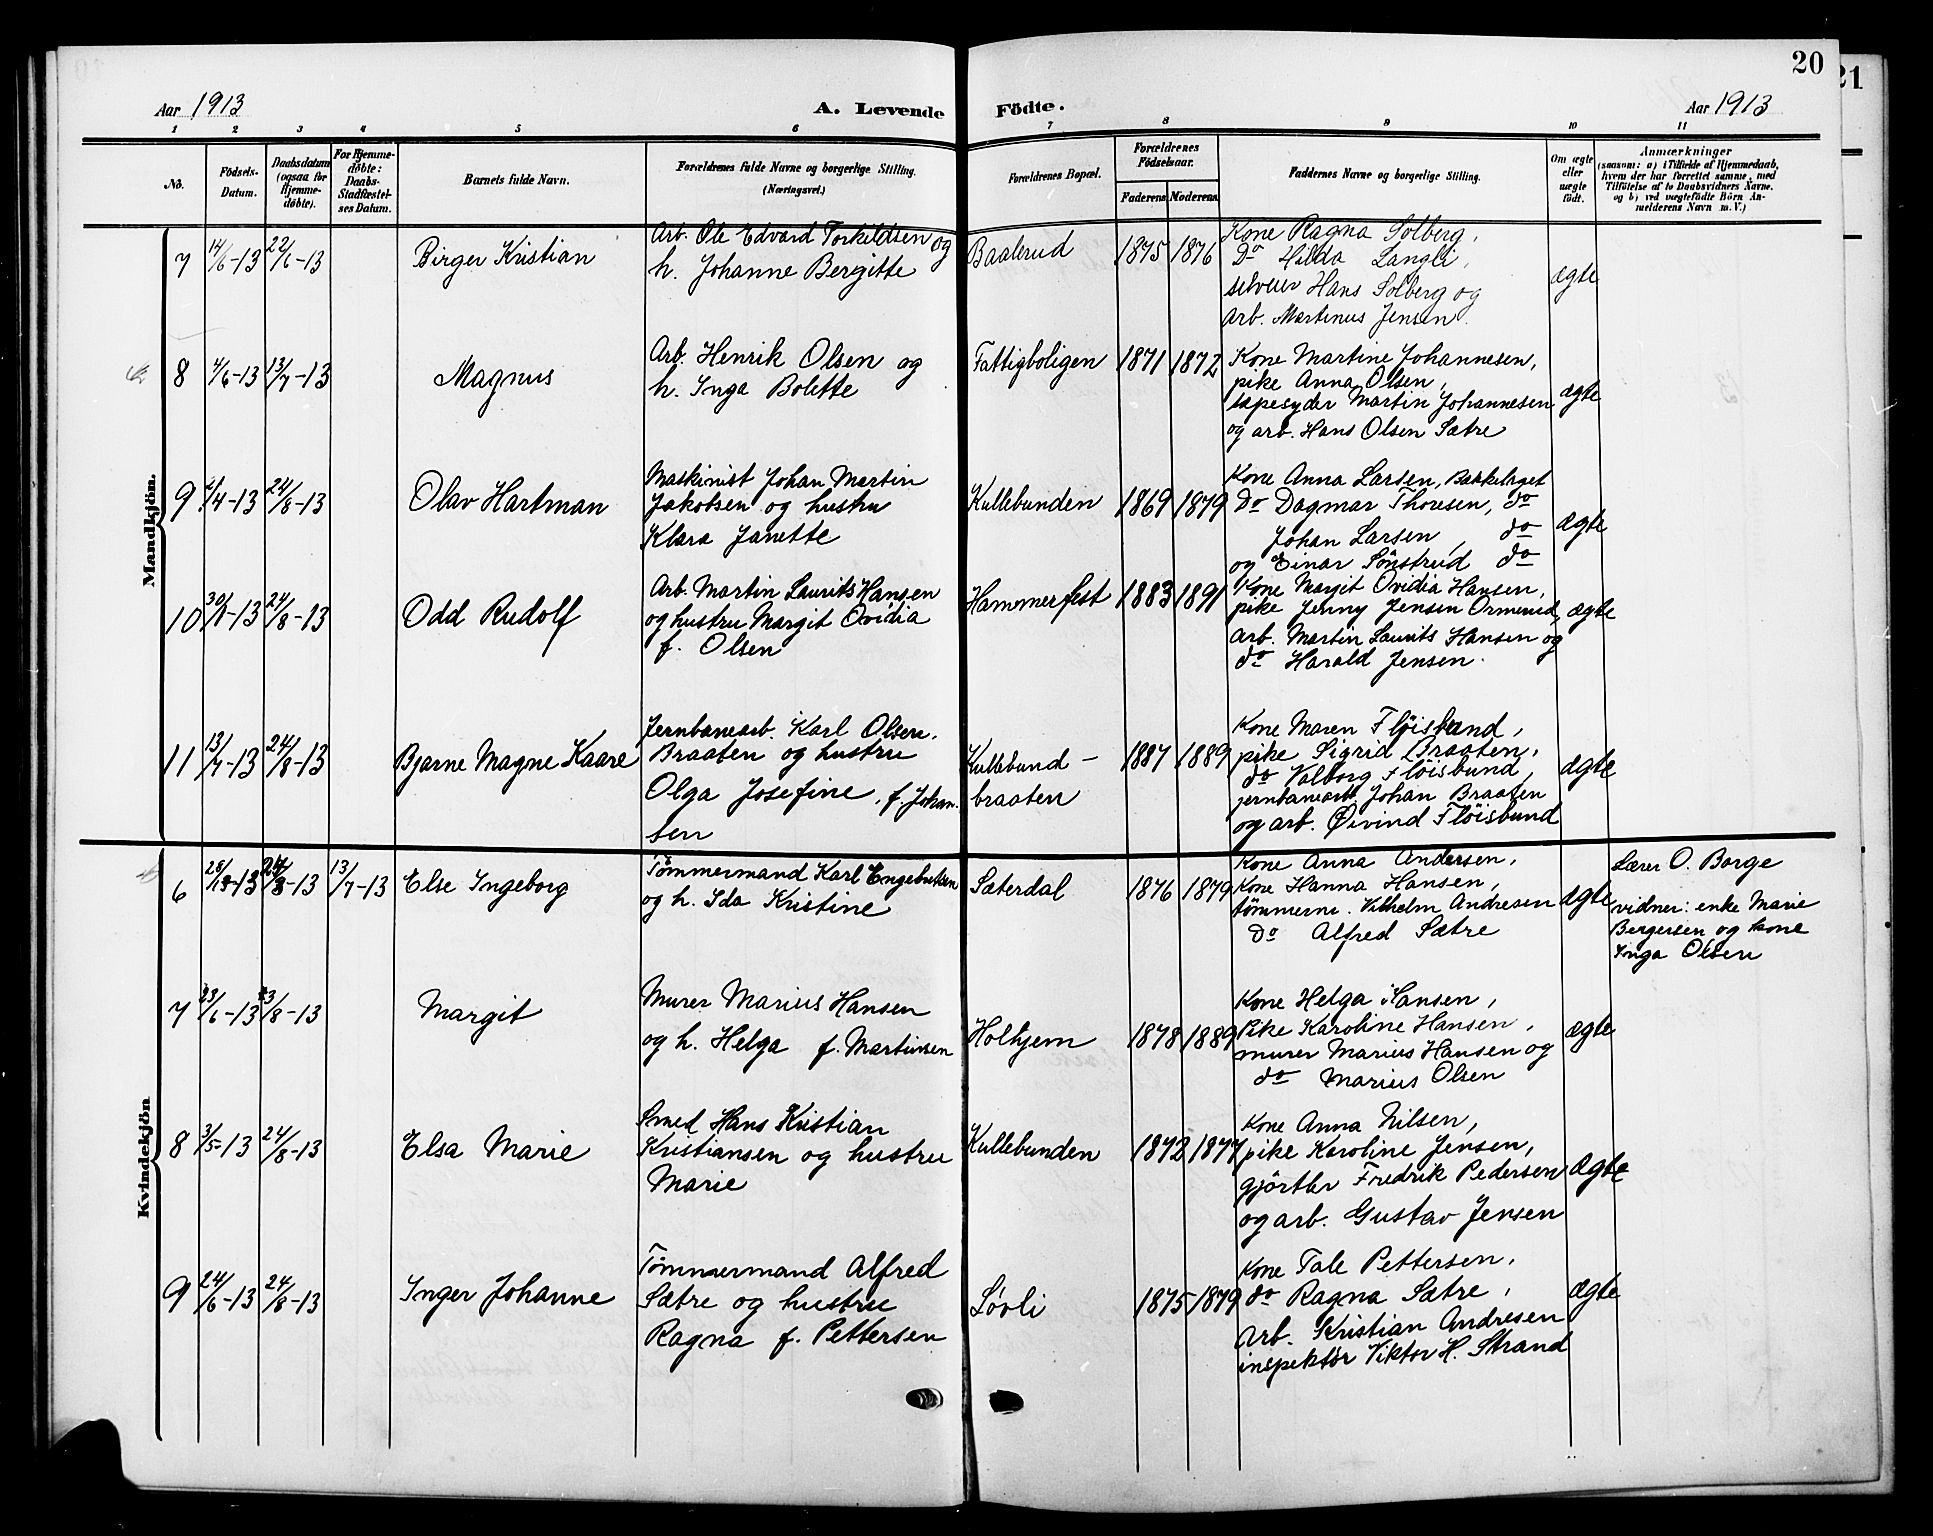 20
21
Aar 1913
A. Levende Födte.
Aar 1913
1 2 3 4 5 6 7 8 9 10 11
No.
Födsels-
Datum.
Daabsdatum
(ogsaa for
Hjemme-
döbte).
For Hjemme-
döbte:
Daabs-
Stadfæstel-
ses Datum.
Barnets fulde Navn.
Forældrenes fulde Navne og borgerlige Stilling.
(Næringsvei.)
Forældrenes Bopæl.
Forældrenes
Födselsaar.
Faderens
Moderens
Faddernes Navne og borgerlige Stilling.
Om ægte
eller
uægte
født.
Anmærkninger
(saasom: a) i Tilfælde af Hjemmedaab,
hvem der har forrettet samme, med
Tilföielse af to Daabsvidners Navne,
og b) ved uægtefödte Börn An-
melderens Navn m. V.)
Mandkjön.
7 14/6-13 22/6-13 Birger Kristian
Arb. Ole Edvard Torkildsen og
h. Johanne Bergitte
Baalerud 1875 1876
Kone Ragna Solberg,
Do Hilda Langli,
selveier Hans Solberg og
Arb. Martinus Jensen.
ægte
8 4/6-13 13/7-13 Magnus
Arb. Henrik Olsen og
h. Inga Bolette
Fattigboligen 1871 1872
Kone Martine Johannesen,
pike Anna Olsen,
sæpesyder Martin Johannesen
og arb. Hans Olsen Sætre
ægte
9 /4-13 24/8-13 Olav Hartman
Maskinist Johan Martin
Jakobsen og hustru
Klara Janette
Kullebunden 1869 1879
Kone Anna Larsen, Bakkelaget
Do Dagmar Thoresen, do
Johan Larsen, do
og Einar Sönstrud do
ægte
10 30/-13 24/8-13 Odd Rudolf
Arb. Martin Laurits Hansen
og hustru Margit Ovidia
f. Olsen
Hammerfest 1883 1891
Kone Margit Ovidia Hansen,
pike Jenny Jensen Ormerud,
Arb. Martin Laurits Hansen og
do Harald Jensen.
ægte
11 13/7-13 24/8-13 Bjarne Magne Kaare
Jernbanearb. Karl Olsen
Braaten og hustru
Olga Josefine, f. Johan-
sen
Kullebund-
braaten
1887 1889
Kone Maren Flöisbund,
pike Sigrid Braaten,
do Valborg Flöisbund,
jernbanearb. Johan Braaten
og arb. Øivind Flöisbund
ægte
Kvindekjön
6 -13 -13 13/7-13 Else Ingeborg
Tömmermand Karl Engebretsen
og h. Ida Kristine
Sæterdal 1876 1879
Kone Anna Andersen,
Kone Hanna Hansen,
tömmerm. Vilhelm Andresen
do Alfred Sætre
ægte
Lærer O. Borge
vidner: enke Marie
Bergersen og kone
Inga Olsen
7 23/6-13 3/8-13 Margit
Murer Marius Hansen
og h. Helga f. Martinsen
Holtjern 1878 1889
Kone Helga Hansen,
Pike Karoline Hansen,
murer Marius Hansen og
do Marius Olsen
ægte
8 3/5-13 24/8-13 Elsa Marie
Smed Hans Kristian
Kristiansen og hustru
Marie
Kullebunden 1872 1877
Kone Anna Nilsen,
pike Karoline Jensen,
gjörtler Fredrik Pedersen
og arb. Gustav Jensen
ægte
9 24/6-13 24/8-13 Inger Johanne
Tömmermand Alfred
Sætre og hustru
Ragna f. Pettersen
Lövli 1875 1879
Kone Tale Pettersen,
do Ragna Sætre,
Arb. Kristian Andresen
inspektör Viktor H. Strand
ægte